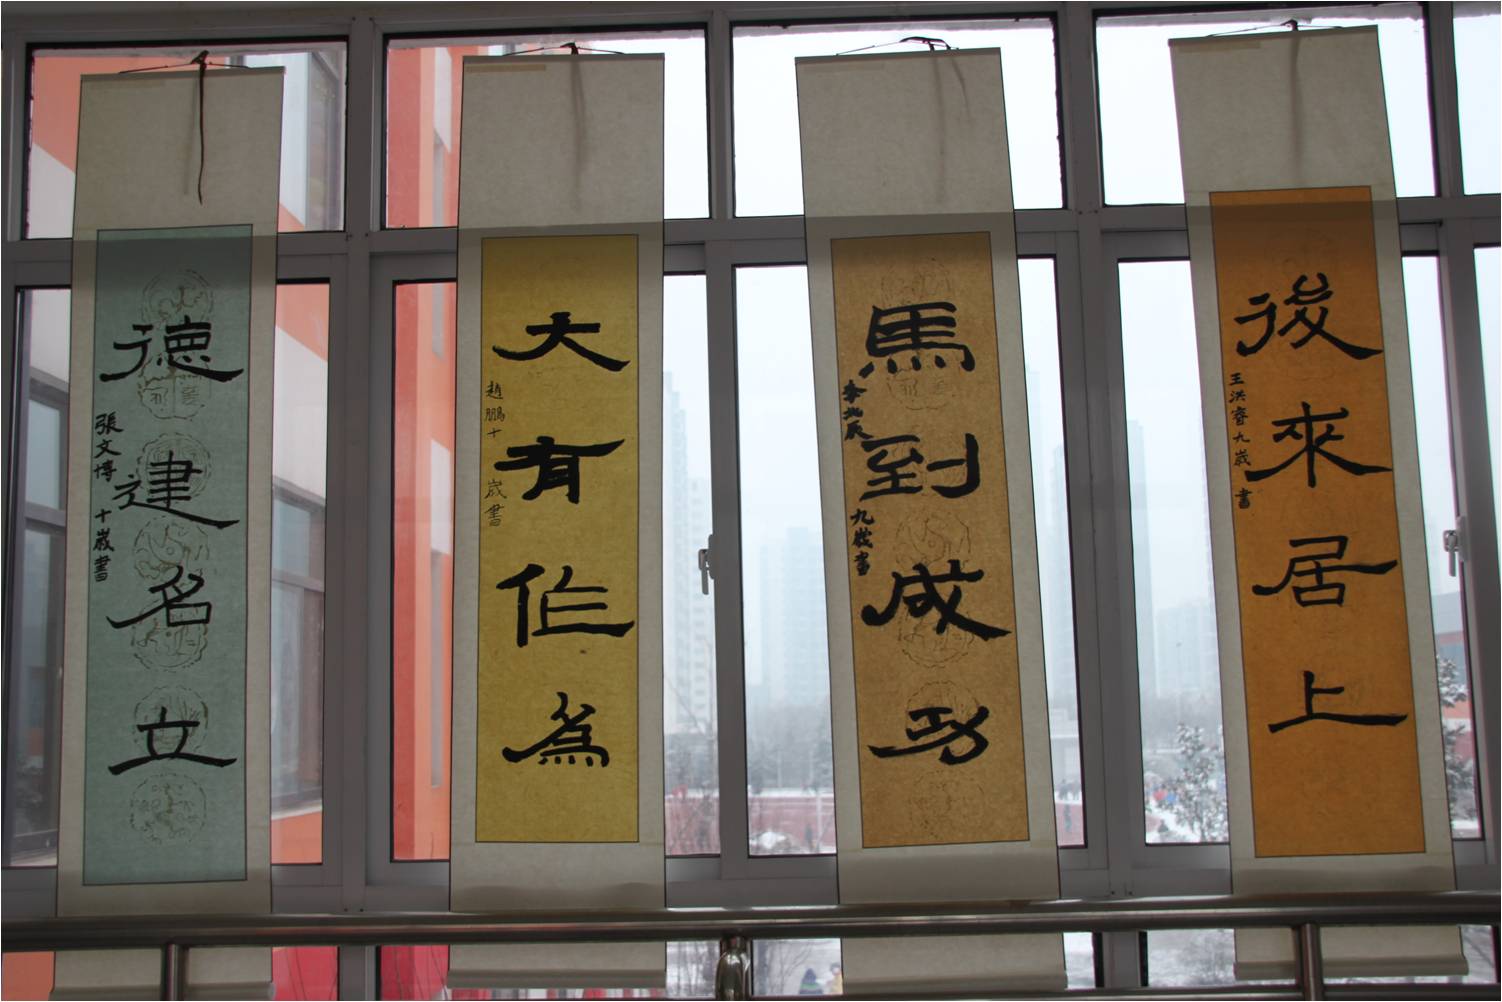 德建名立
張文博 十歲書
大有作為
趙鵬十歲書
馬到成功
李北辰 九歲書
後來居上
王洪睿九歲書